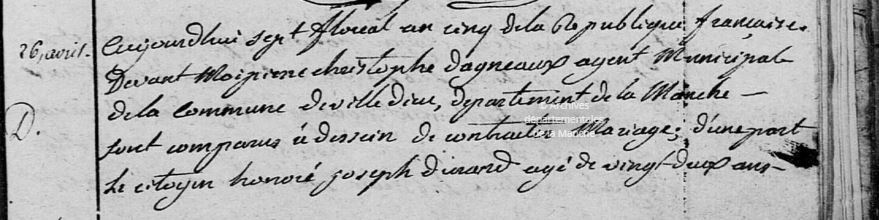 26, avril.
D.
aujourdhui sept floreal an cinq dela Republique française.
Devant Moi pierre christophe dagneaux agent Municipal
dela Commune deville dieu, departement de la Manche —
sont comparus à dessein de contracter Mariage; d'une part
Le citoyen honoré joseph durand agé de vingt-deux ans —
© Archives
départementales
de la Manche